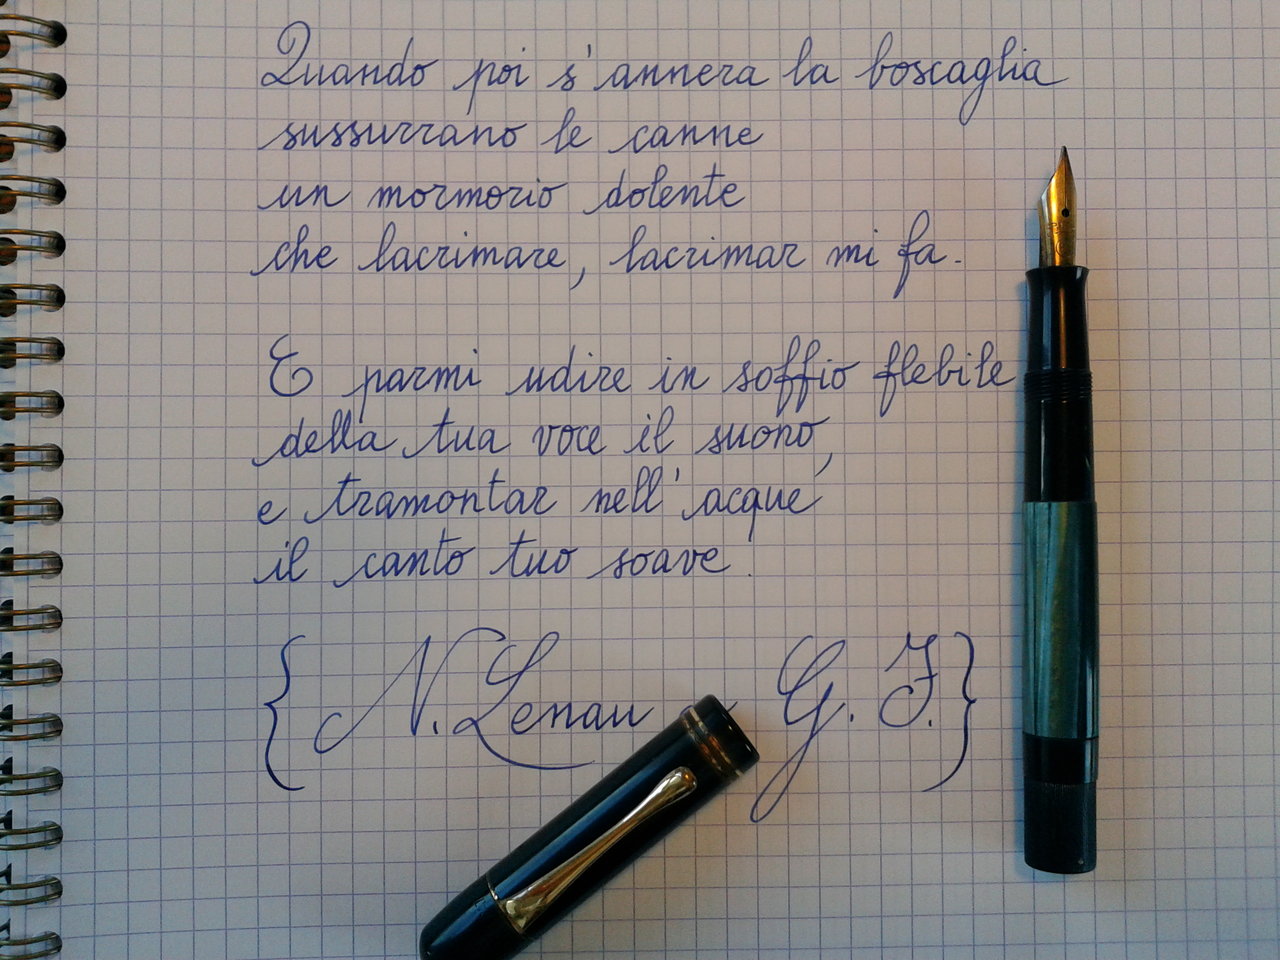 Quando poi s'annera la boscaglia
sussurrano le canne
un mormorio dolente
che lacrimare, lacrimar mi fa.
E parmi udire in soffio flebile
della tua voce il suono,
e tramontar nell'acque
il canto tuo soave.
{ N. Lenau G. F. }